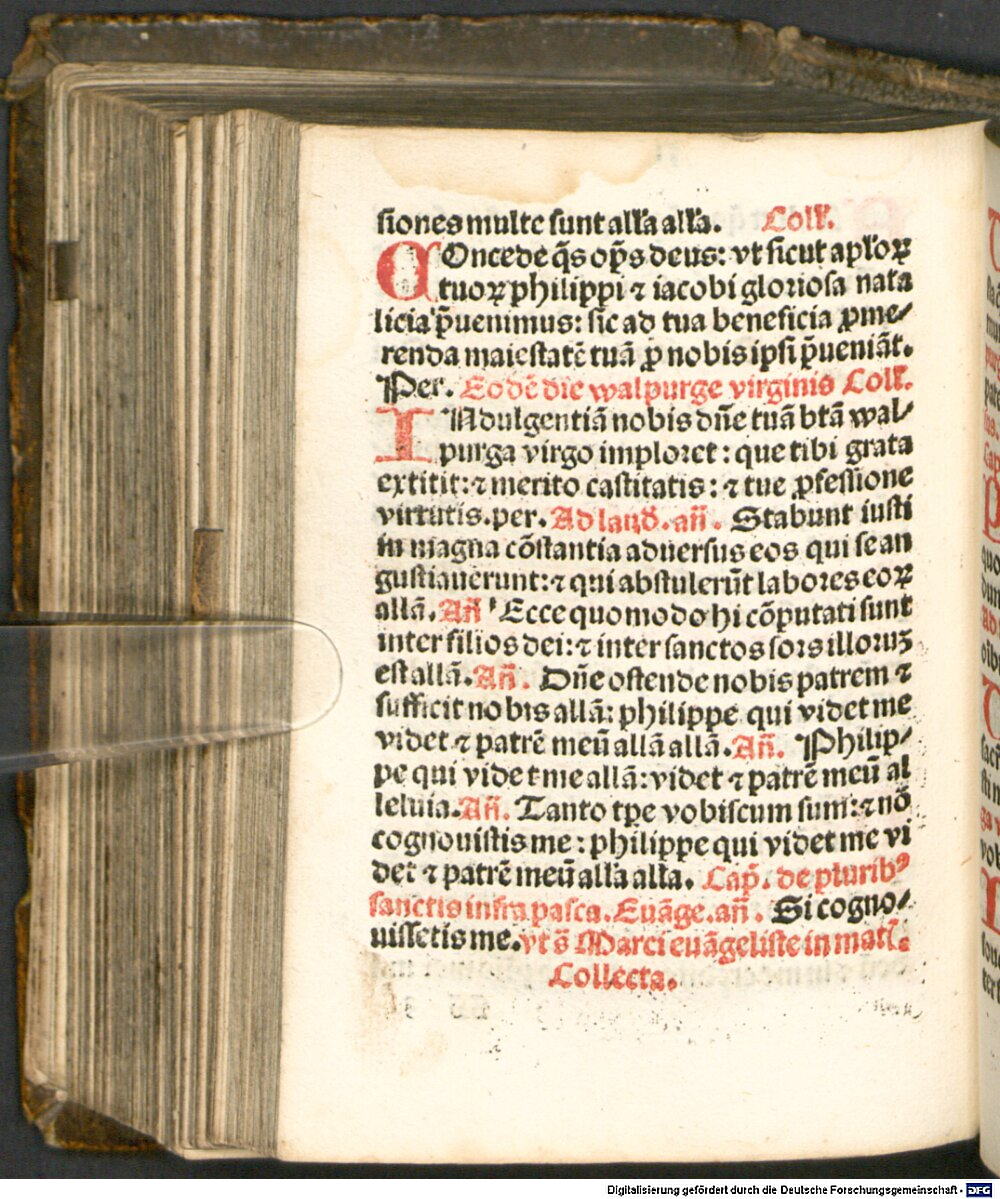 siones multe sunt alła alła. Coll̃.
COncede q̄s op̄s deus: vt sicut apl̃oꝝ
tuoꝝ philippi ⁊ iacobi gloriosa nata
licia p̄uenimus: sic ad tua beneficia ꝓme⸗
renda maiestatē tuā ꝓ nobis ipsi p̄ueniāt.
Per. Eodē die walpurge virginis Coll̃.
INdulgentiā nobis dn̄e tuā btā wal⸗
purga virgo imploret: que tibi grata
extitit: ⁊ merito castitatis: ⁊ tue ꝓfessione
virtutis. per. Ad laud̄. añ. Stabunt iusti
in magna cōstantia aduersus eos qui se an
gustiauerunt: ⁊ qui abstulerūt labores eoꝝ
allā. Añ Ecce quomodo hi cōputati sunt
inter filios dei: ⁊ inter sanctos sors illoruꝫ
est allā. Añ. Dn̄e ostende nobis patrem ⁊
sufficit nobis allā: philippe qui videt me
videt ⁊ patrē meū allā allā. Añ. Philip⸗
pe qui videt me allā: videt ⁊ patrē meū al
leluia. Añ. Tanto tꝑe vobiscum sum: ⁊ nō
cognouistis me: philippe qui videt me vi
det ⁊ patrē meū alła alła. Cap̄. de pluribꝰ
sanctis infra pasca. Euāge. añ. Si cogno⸗
uissetis me. vt s̄ Marci euāgeliste in mat̃.
Collecta.
Digitalisierung gefördert durch die Deutsche Forschungsgemeinschaft - DFG